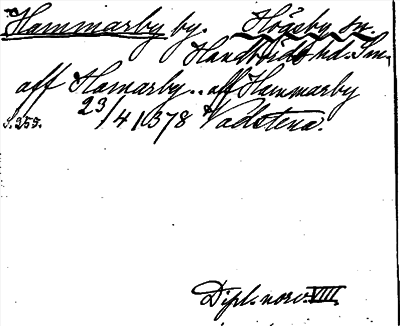 Hammarby by. Högsby sn.
Handbörds hd. Sm.
aff Hamarby.. aff Hammarby
S. 255. 23/4 1378 Vadstena.
Dipl. norv. VIII.